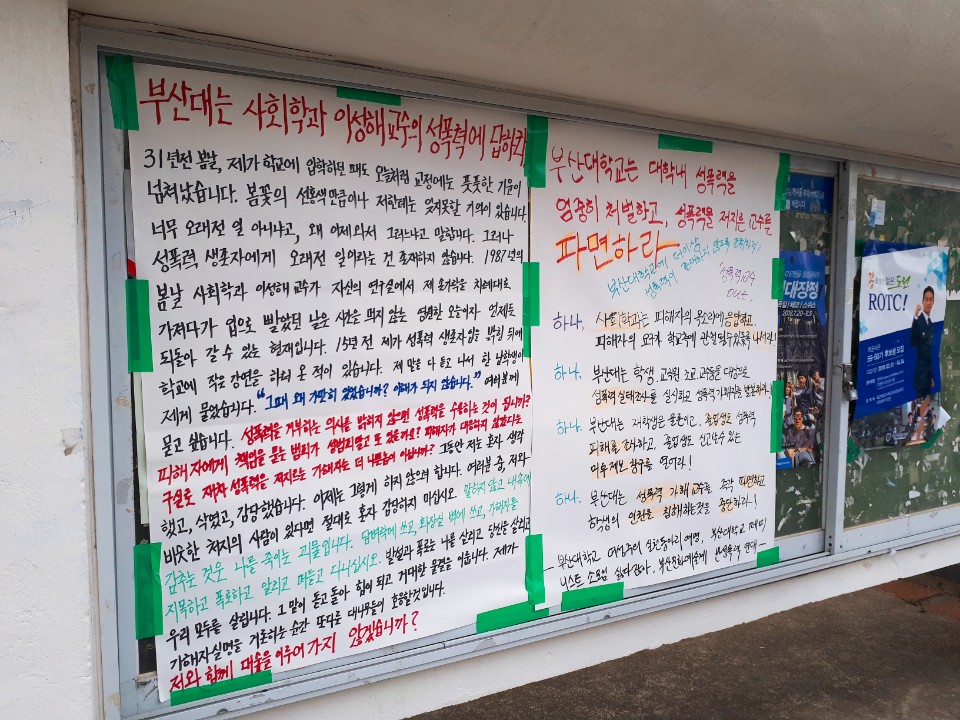 부산대는 사회학과 이성해교수의 성폭력에 답하라
31년전 봄날, 제가 학교에 입학하던 때도 오늘처럼 교정에는 풋풋한 기운이
넘쳐났습니다. 봄꽃의 선홍색만큼이나 저한테는 잊지못할 기억이 있습니다
너무 오래전 일 아니냐고, 왜 이제와서 그러느냐고 말합니다. 그러나
성폭력 생존자에게 오래전 일이라는 건 존재하지 않습니다. 1987년의
봄날 사회학과 이성해 교수가 자신의 연구실에서 제 손가락을 차례대로
가져다가 입으로 빨았던 날은 시간을 먹지 않는 영원한 오늘이자 언제든
되돌아 갈 수 있는 현재입니다. 15년 전 제가 성폭력 생존자임을 밝힌 뒤에
학교에 작은 강연을 하러 온 적이 있습니다. 제 말을 다 듣고 나서 한 남학생이
제게 물었습니다. "그때 왜 가만히 있었습니까? 이해가 되지 않습니다." 여러분께
묻고 싶습니다. 성폭력을 거부하는 의사를 밝히지 않으면 성폭력을 수용하는 것이 됩니까?
피해자에게 책임을 묻는 범죄가 성범죄말고 또 있을까요? 피해자가 대응하지 않았다는
구실로 재차 성폭력을 저지르는 가해자는 더 나쁜놈이 아닙니까? 그동안 저는 혼자 생각
했고, 삭였고, 감당했습니다. 이제는 그렇게 하지 않으려 합니다. 여러분 중, 저와
비슷한 처지의 사람이 있다면 절대로 혼자 감당하지 마십시오. 말하지 않고 내속에
감추는 것은 나를 죽이는 괴물입니다. 담벼락에 쓰고, 화장실 벽에 쓰고, 가해자를
지목하고 폭로하고 알리고 떠들고 다니십시오. 발설과 폭로는 나를 살리고 당신을 살리고
우리 모두를 살립니다. 그 말이 돌고 돌아 힘이 되고 거대한 물결을 이룹니다. 제가
가해자실명을 거론하는 순간 또다른 대나무들이 호응할것입니다.
저와 함께 대숲을 이루어 가지 않겠습니까?
부산대학교는 대학내 성폭력을
엄중히 처벌하고, 성폭력을 저지른 교수를
파면하라
부산대학교에 더이상
성폭력이
성폭력교수
out.
하나. 사회학과는 피해자의 목소리에 응답하고,
피해자의 요구가 학교측에 관철될수있도록 나서라!
하나. 부산대는 학생. 교직원. 조교. 교수들을 대상으로
성폭력 실태조사를 실시하고 성폭력
하나. 부산대는 재학생은 물론이고, 졸업생도 성폭력
피해를 조사하고, 졸업생도 신고할수 있는
창구를 열어라!
하나. 부산대는 성폭력 가해교수를 즉각 파면하고
학생의 인권을 침해하는것을 중단하라!
부산대학교 여성주의 실천동아리 여명, 부산대학교 페미
니스트 소모임 싫다잖아, 부산문화예술계 반성폭력 연대
대장정
ROTC!